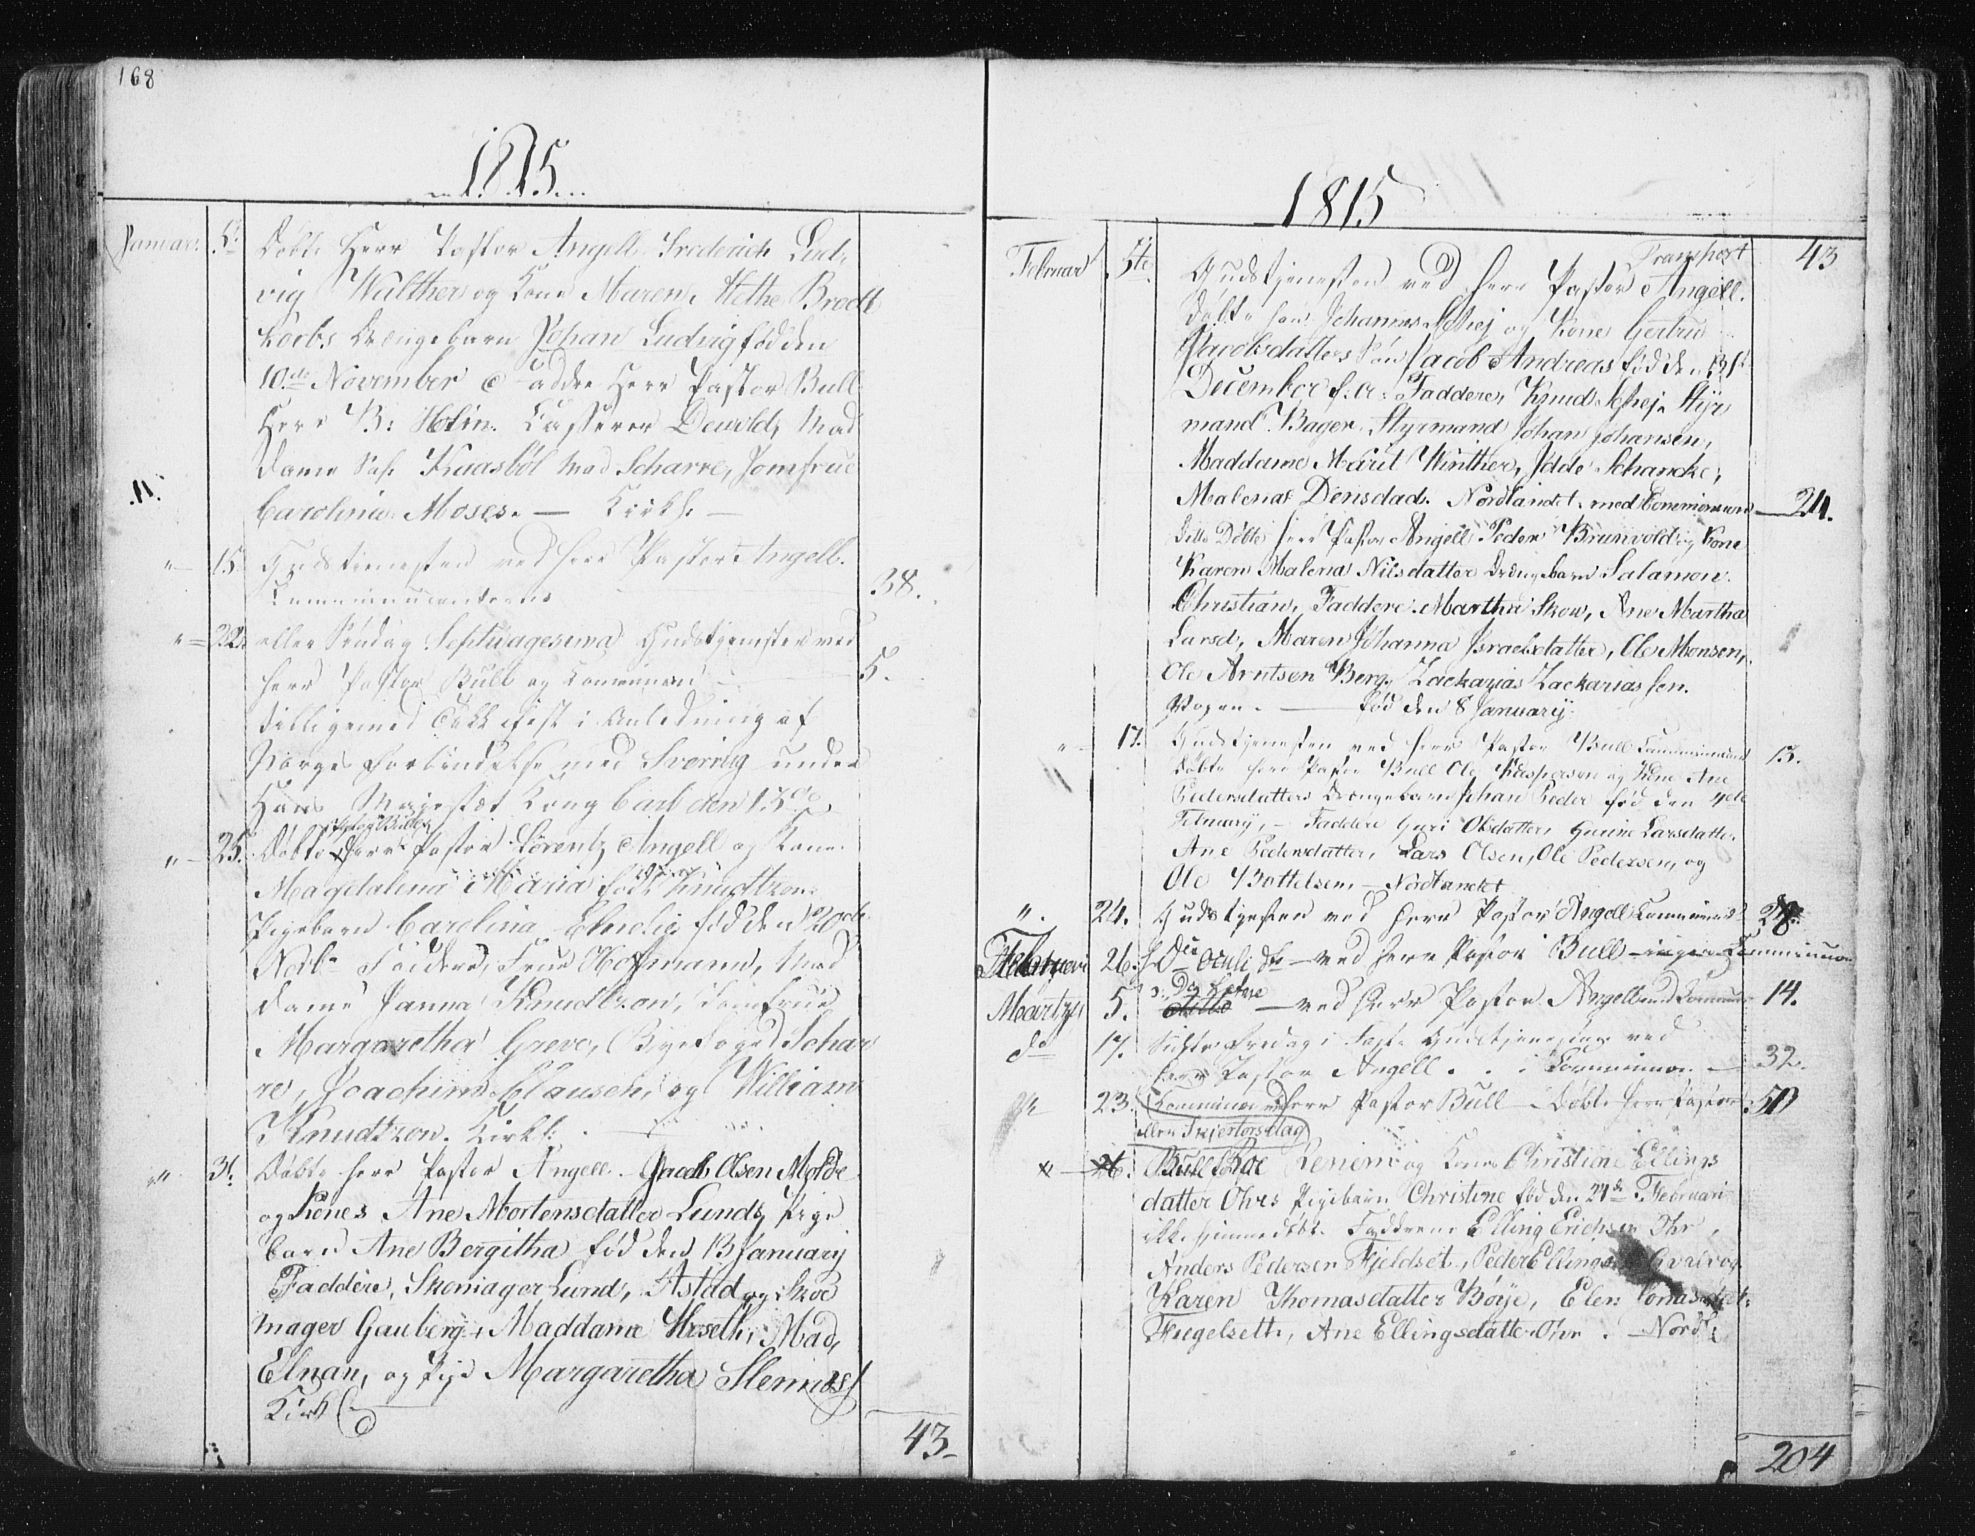 168
1815
Januar. 5te Döbte Herr Pastor Angell Frederich Lud-
vig Walther og Kone Maren Methe Brodt
korbs Drængebarn Johan Ludvig föd den
10de November Faddre Herr Pastor Bull
Herr B: Holm. Casserer Dewold, Mad
dame Knasböl Mad Scharre, Jomfrue
Carolina Moses. — Kirk:
" 15. Gudstienesten ved herr Pastor Angell.
Communicanterne 38.
" 22. eller Söndag Septuagesima Gudstjenesten ved
herr Pastor Bull og Communion 5.
tilligemed Takkefest i Anledning af
Norges Forbindelse med Sverrig under
Hans Majestæt Kong Carl den 13de
" 25. Döbte Herr Pastor Lorentz Angell og Kone
Magdalena Maria föd Knudtzon
Pigebarn Carolina Emelie föd den 20de
Novbr Faddere, Frue Hoffmann, Mad
dame Janna Knudtzon, Jomfrue
Margaretha Greve, Byefoged Schar
re, Joachim Clausen, og William
Knudtzon. Kirk:
" 31. Döbte herr Pastor Angell. Jacob Olsen Molde
og Kones Ane Mortensdatter Lunds Pige
barn Ane Bergitha föd den 13 January
Faddere, Skomager Lund, Astad og Skoe
mager Gauberg, Maddame Hoseth, Mad,
Elnan, og Pige Margaretha Slemnes
Kirk
43
1815
Transport 43
Februar 5te. Gudstjenesten ved herr Pastor Angell.
Döbte han Johannes Schej og Kone Gertru
Jacobsdatters Sön Jacob Andreas föd den 31te
December f. A. Faddere, Knud Schej. Styr
mand Bager, Styrmand Johan Johansen,
Maddame Marit Winther, Idde Schancke,
Malena Densdad. Nordlandet. med Communion 24.
Ditto Döbte herr Pastor Angell Peder Brunvold og Kone
Karen Malena Nilsdatter Drengebarn Salamon
Christian, Faddere. Martha Skow, Ane Martha
Larsd, Maren Johanna Israelsdatter, Ole Monsen,
Ole Arntsen Berg, Zackarias Zackariassen.
Vogen. — föd den 8 January.
" 17. Gudstjenesten ved herr Pastor Bull Communicant 13.
Döbte herr Pastor Bull Ole Kaspersen og Kone Ane
Pedersdatters Drengebarn Johan Peder föd den 4de
February, — Faddere Guri Olsdatter, Gurine Larsdatter
Ane Pedersdatter, Lars Olsen, Ole Pedersen, og
Ole Bottelsen. — Nordlandet
". 24. Gudstjesten ved herr Pastor Angell Communion 28.
Februari 26. Oculi ved herr Pastor Bull ingen Communion
Martzi 5. ditto ved herr Pastor Angell med Communion 14.
do 17. Sidste Fredag i Faste Gudstjenesten ved
herr Pastor Angell . . i Communion 32.
23. Communion ved herr Pastor Bull Döbte herr Pastor 50
eller Skjertorsdag
26. Bull Roe og Kone Christiene Ellings
datter Ohrs Pigebarn Christine föd den 24de Februari
ikke hiemmedöbt. Faddrene Elling Erichsen Ohr,
Anders Pedersen Fjeldset, Peder Ellingsen
Karen Thomasdatter Böye, Elen
Ane Ellingsdatter Ohr. — Nordl:
204